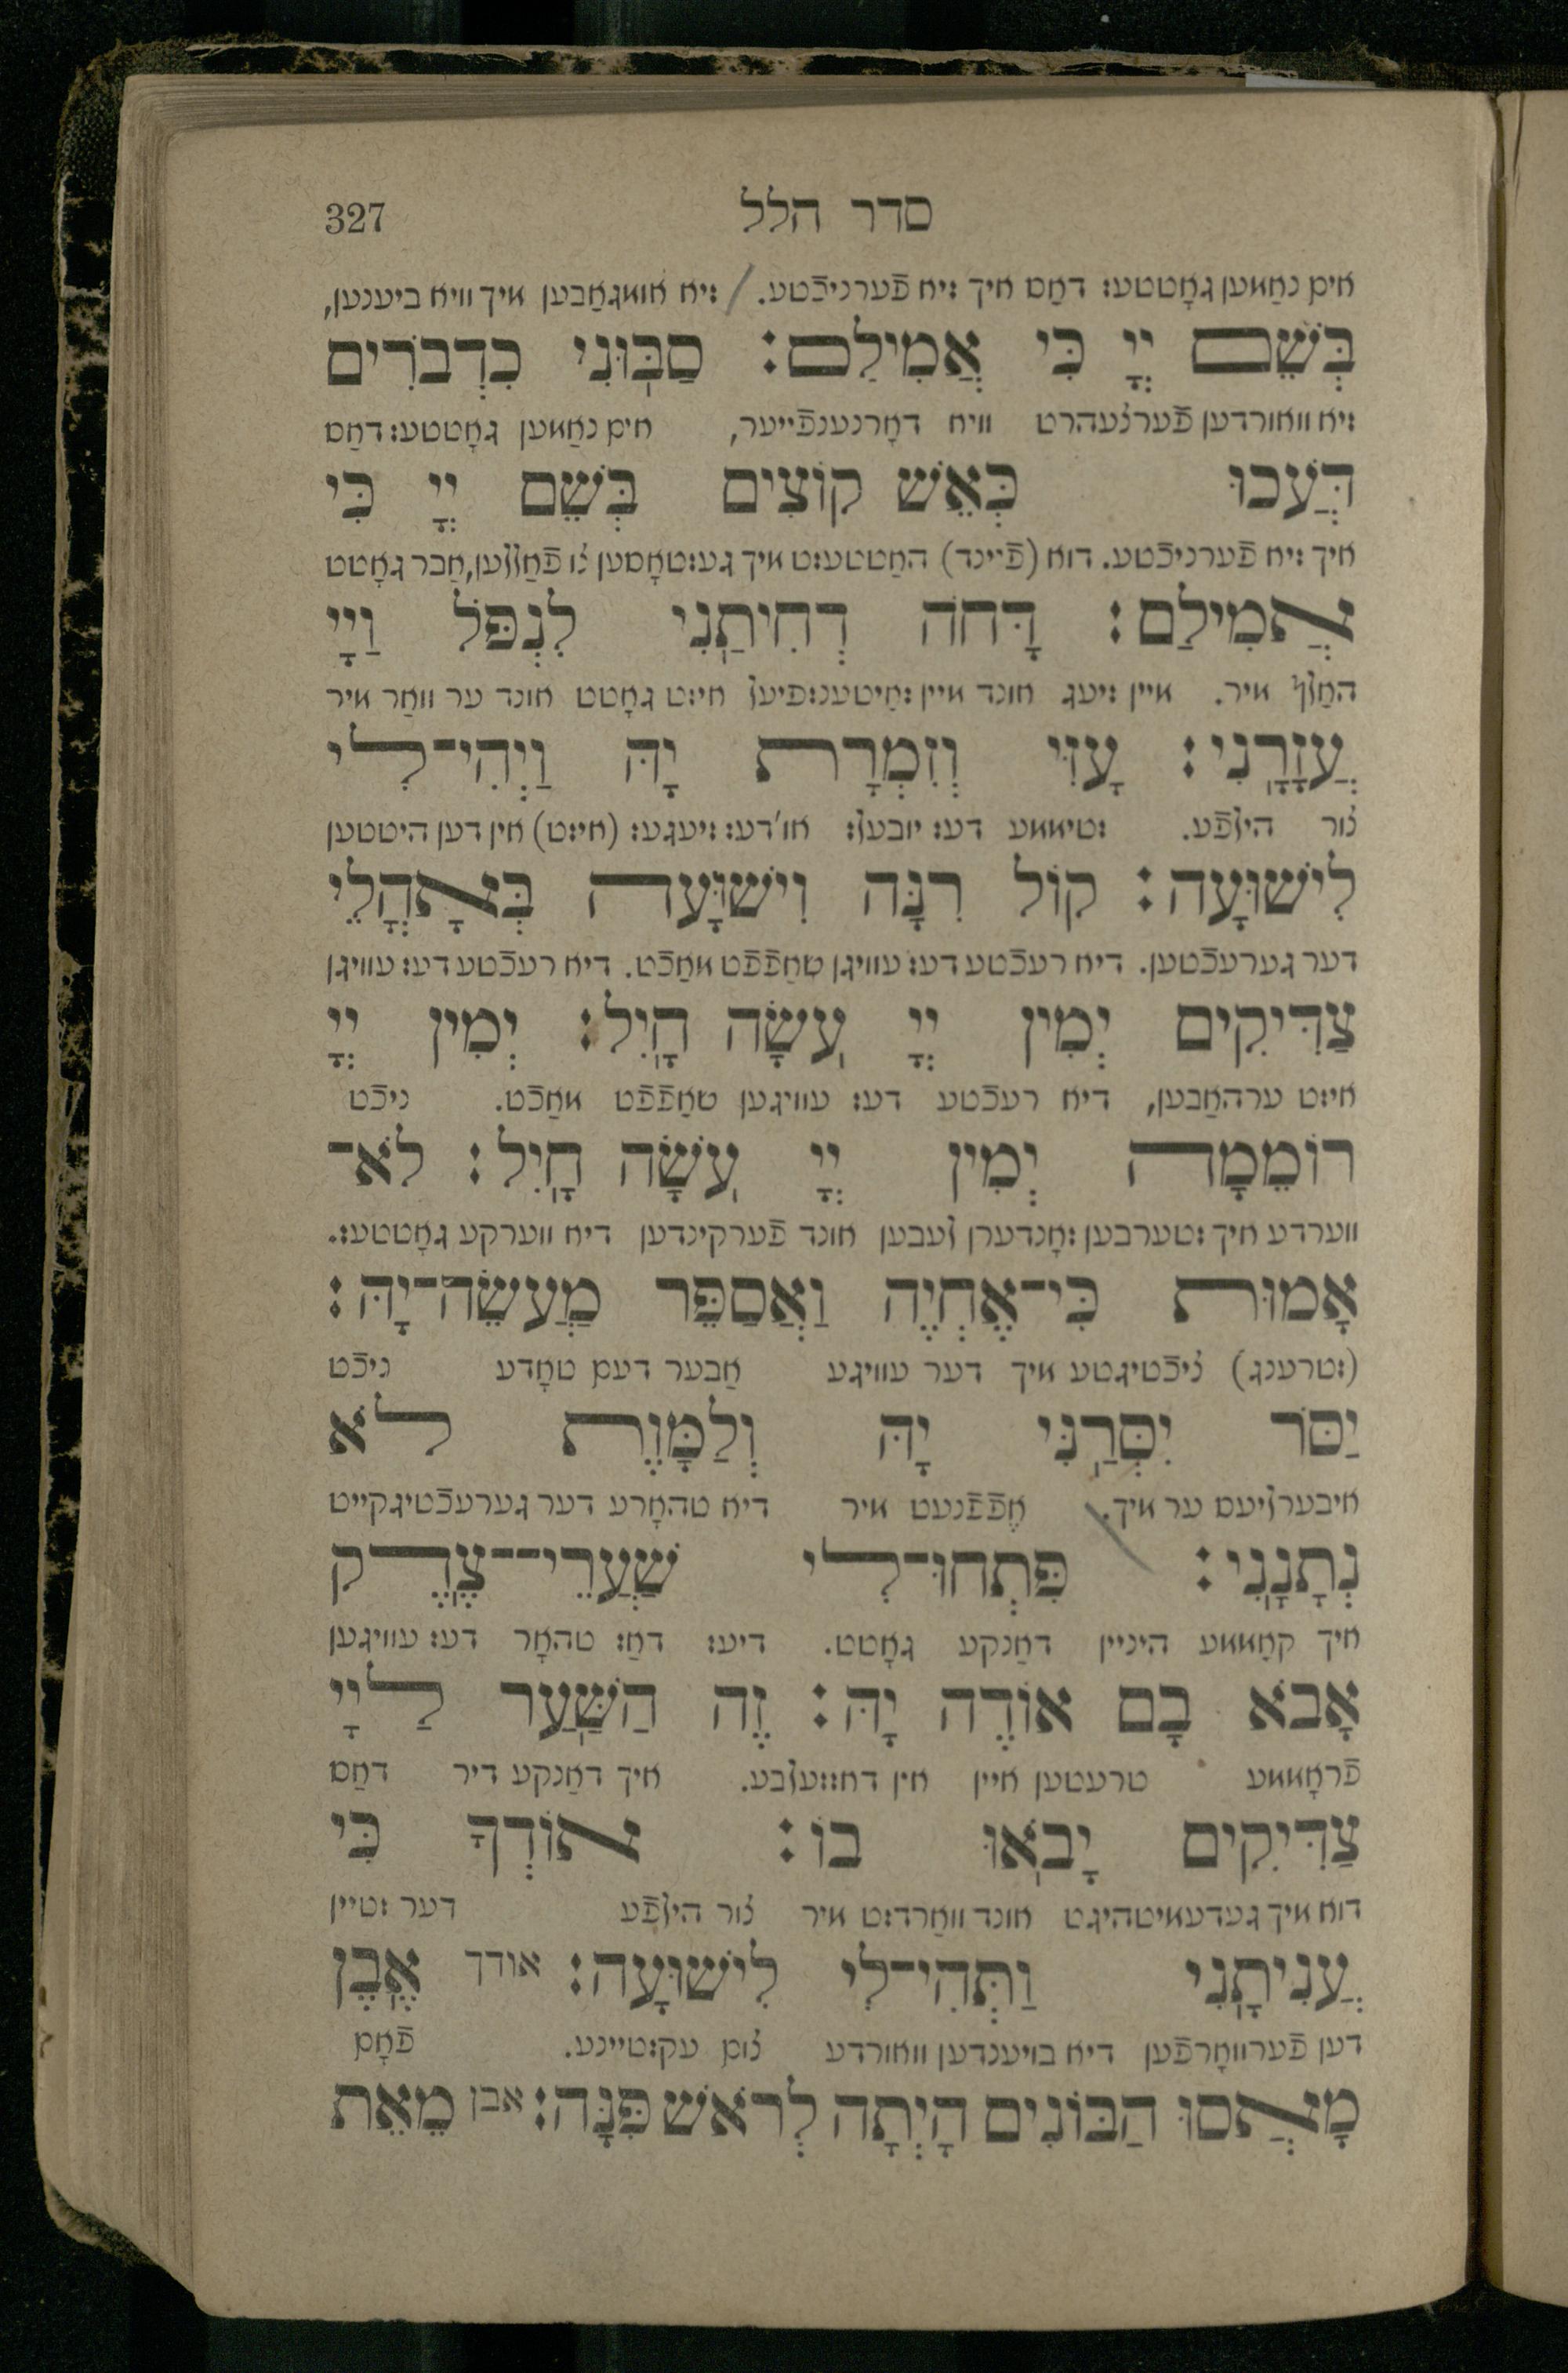 סדר הלל 327
אים נאַמען גאָטטעס דאַס איך זיא פֿערניכֿטע. זיא אומגאַבען מיך וויא ביענען,
בְּשֵׁם יְיָ כִּי אֲמִילַם: סַבּוּנִי כִדְבֹרִים
זיא וואורדען פֿערצעהרט וויא דאָרנענפֿייער, אים נאַמען גאָטטעס דאַס
דֹּעֲכוּ כְּאֵשׁ קוֹצִים בְּשֵׁם יְיָ כִּי
איך זיא פֿערניכֿטע. דוא (פֿיינד) האַטטעסט מיך געשטאָסען צו פֿאַללען, אַבר גאָטט
אֲמִילַם: דָּחֹה דְחִיתַנִי לִנְפֹּל וַיְיָ
האַלף מיר. מיין זיעג אונד מיין זאַיטענשפיעל איזט גאָטט אונד ער וואַר מיר
עֲזָרָנִי: עָזִּי וְזִמְרָת יָהּ וַיְהִי־לִי
צור הילפֿע. שטיממע דעס יובעלס או'דעס זיעגעס (איזט) אין דען היטטען
לִישׁוּעָה: קוֹל רִנָּה וִישׁוּעָה בְּאָהֳלֵי
דער גערעכֿטען. דיא רעכֿטע דעס עוויגן שאַפֿפֿט מאַכֿט. דיא רעכֿטע דעס עוויגן
צַדִּיקִים יְמִין יְיָ עֹשָׂה חָיִל: יְמִין יְיָ
איזט ערהאַבען, דיא רעכֿטע דעס עוויגען שאַפֿפֿט מאַכֿט. ניכֿט
רוֹמֵמָה יְמִין יְיָ עֹשָׂה חָיִל: לֹא־
ווערדע איך שטערבען זאָנדערן לעבען אונד פֿערקינדען דיא ווערקע גאָטטעס.
אָמוּת כִּי־אֶחְיֶה וַאֲסַפֵּר מַעֲשֵׂה־יָהּ:
(שטרענג) ציכֿטיגטע מיך דער עוויגע אַבער דעם טאָדע ניכֿט
יַסֹּר יִסְּרַנִּי יָהּ וְלַמָּוֶת לֹא
איבערליעס ער מיך. אֶפֿפֿנעט מיר דיא טהאָרע דער גערעכֿטיגקייט
נְתָנָנִי: פִּתְחוּ־לִי שַׁעֲרֵי־צֶדֶק
איך קאָממע היניין דאַנקע גאָטט. דיעס דאַז טהאָר דעס עוויגען
אָבֹא בָם אוֹדֶה יָהּ: זֶה הַשַּׁעַר לַיְיָ
פֿראָממע טרעטען איין אין דאססעלבע. איך דאַנקע דיר דאַס
צַדִּיקִים יָבֹאוּ בוֹ: אוֹדְךָ כִּי
דוא מיך געדעמיטהיגט אונד וואַרדסט מיר צור הילפֿע דער שטיין
עֲנִיתָנִי וַתְּהִי־לִי לִישׁוּעָה: אודך אֶבֶן
דען פֿערוואָרפֿען דיא בויענדען וואורדע צום עקשטיינע. פֿאָם
מָאֲסוּ הַבּוֹנִים הָיְתָה לְרֹאשׁ פִּנָּה: אבן מֵאֵת